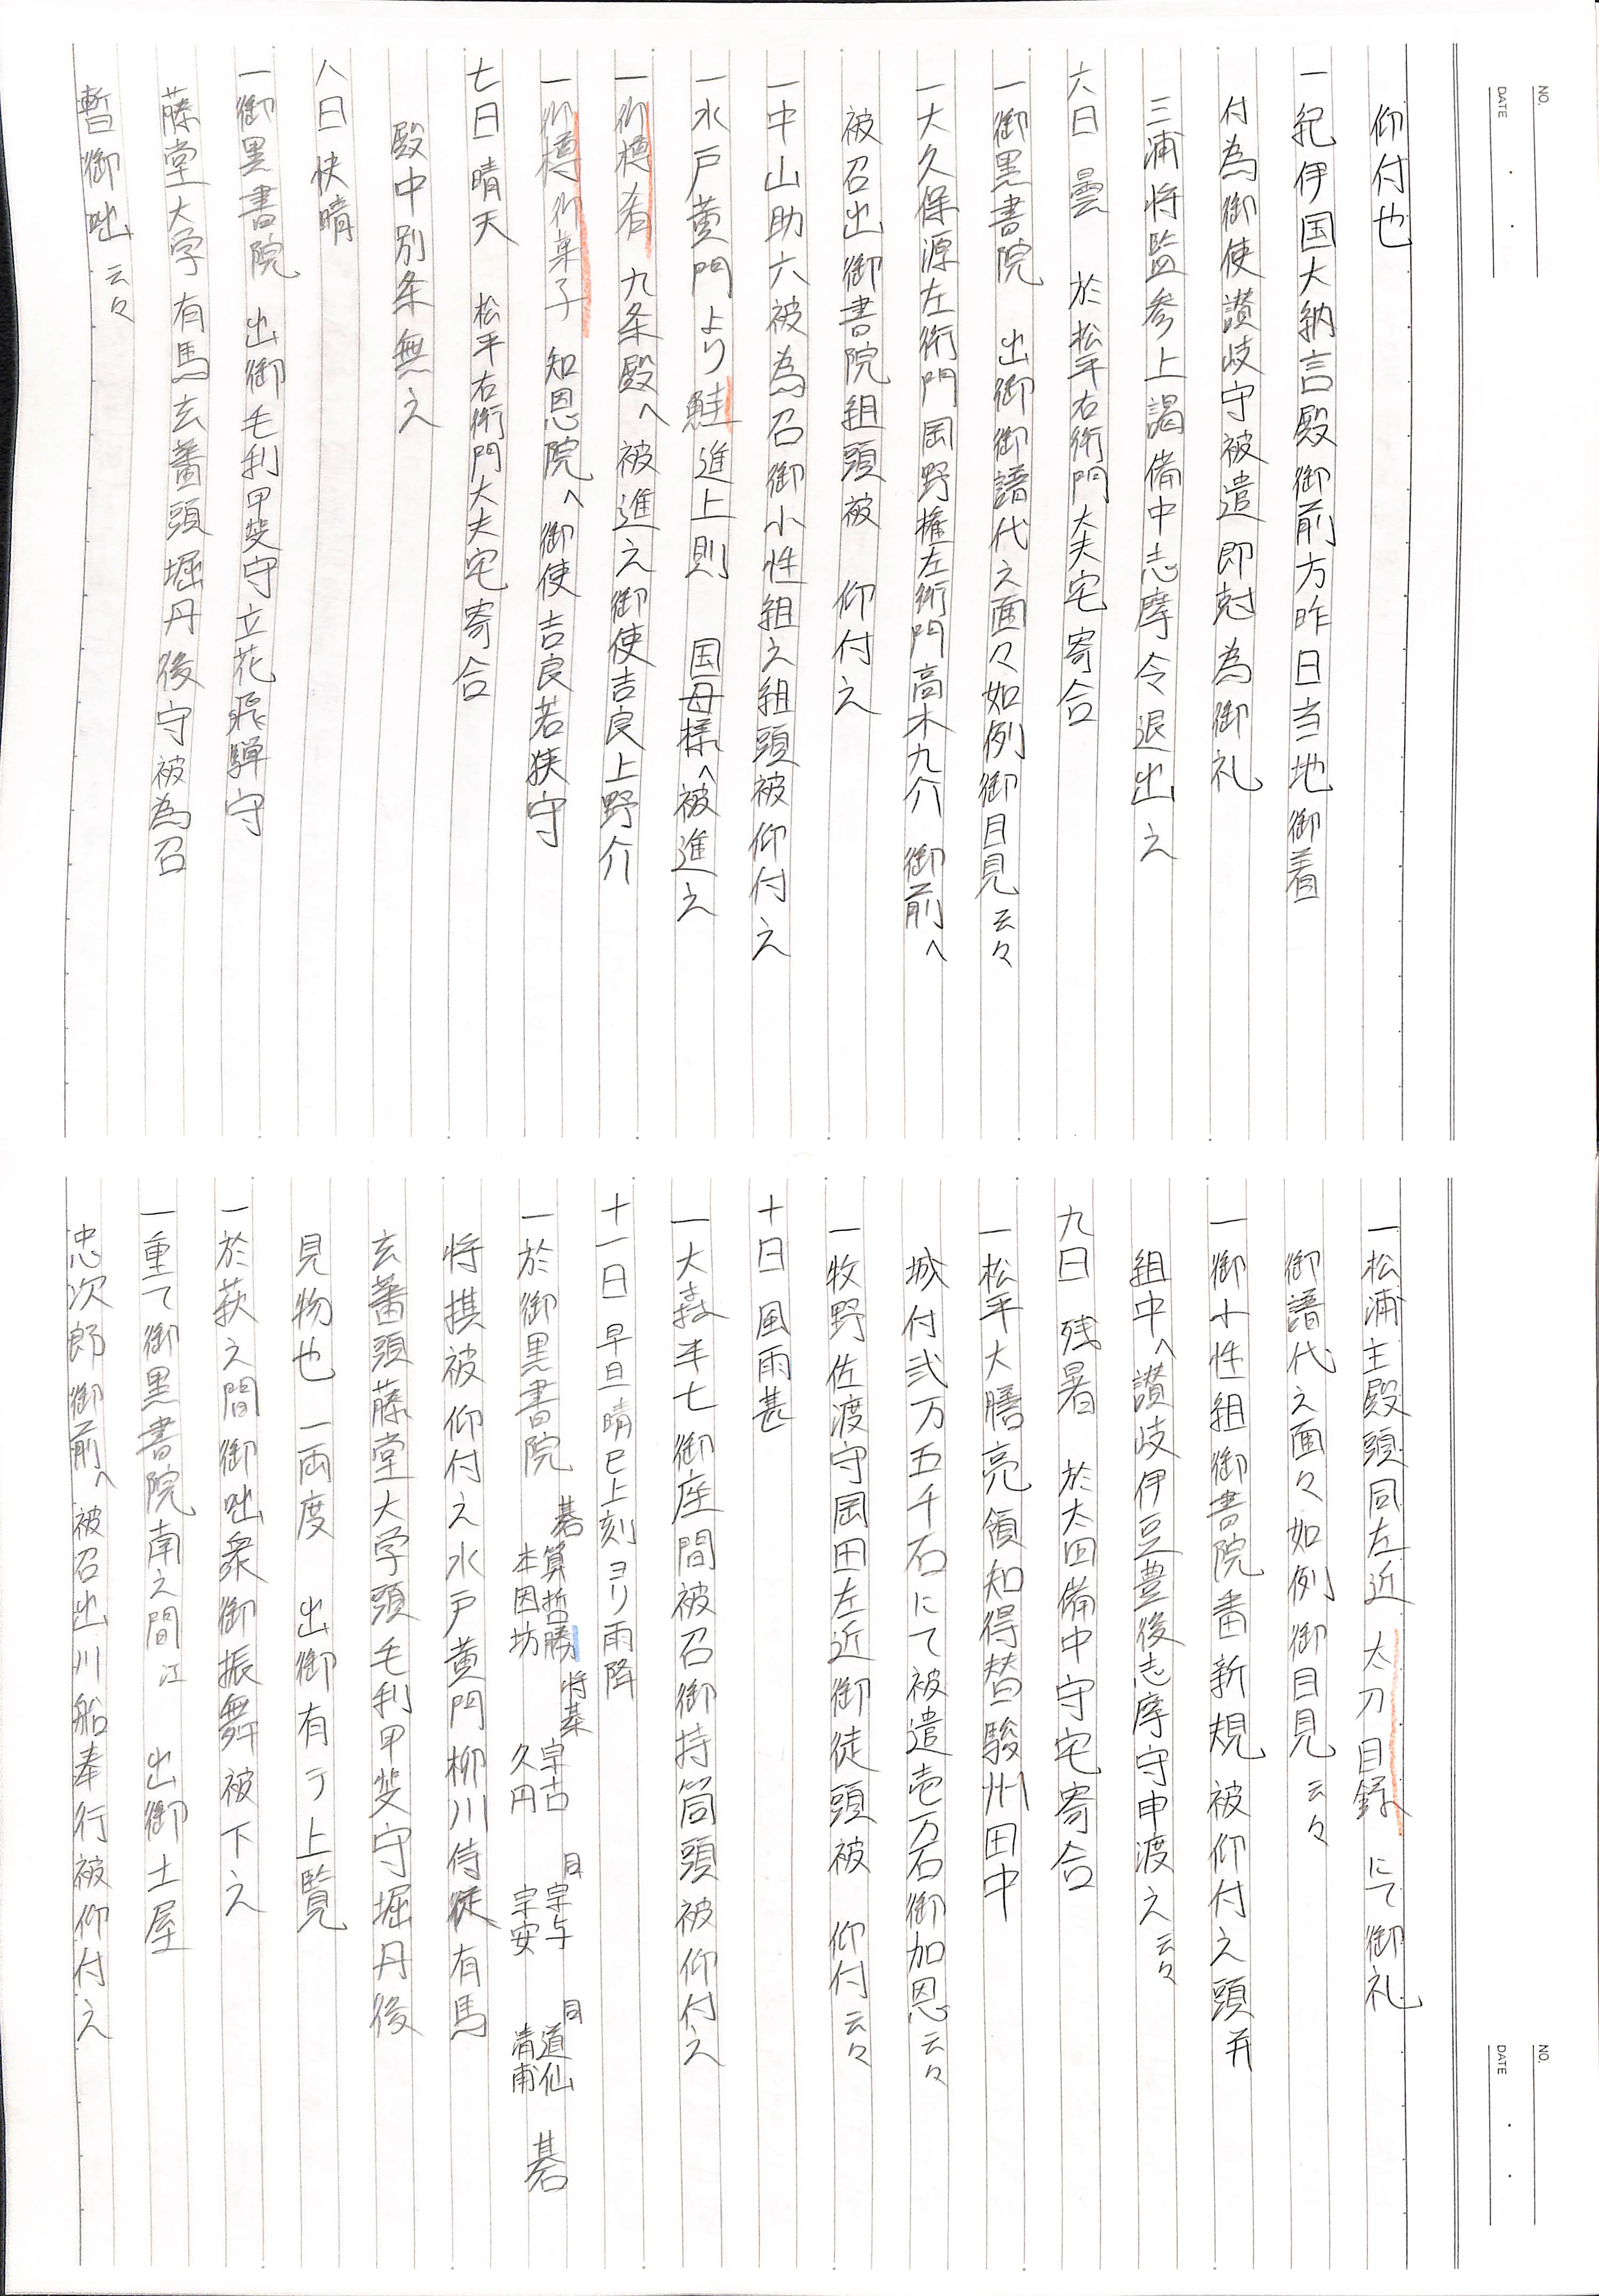 NO.
DATE
仰付也
一紀伊国大納言殿御前方昨日当地御着
付為御使讃岐守被遣即尅為御礼
三浦将監参上謁備中志摩令退出之
六日 曇 於松平右衛門大夫宅寄合
一御黒書院 出御御譜代之面々如例御目見云々
一大久保源左衛門岡野権左衛門高木九介 御前へ
被召出御書院組頭被 仰付之
一中山助六被為召御小性組之組頭被仰付之
一水戸黄門より鮭進上則 国母様へ被進之
一御樽肴 九条殿へ被進之御使吉良上野介
一御樽御菓子 知恩院へ御使吉良若狭守
七日 晴天 松平右衛門大夫宅寄合
殿中別条無之
八日 快晴
一御黒書院 出御毛利甲斐守立花飛騨守
藤堂大学有馬玄蕃頭堀丹後守被為召
暫御咄云々
NO.
DATE
一松浦主殿頭同左近 太刀目録にて御礼
御譜代之面々如例御目見云々
一御小性組御書院番新規被仰付之頭并
組中へ讃岐伊豆豊後志摩守申渡之云々
九日 残暑 於太田備中守宅寄合
一松平大膳亮領知得替駿州田中
城付弐万五千石にて被遣壱万石御加恩云々
一牧野佐渡守岡田左近御徒頭被 仰付云々
十日 風雨甚
一大森半七御座間被召御持筒頭被仰付之
十一日 早旦晴巳上刻ヨリ雨降
一於御黒書院 碁 算哲勝 本因坊 将棊 宗古 久円 同 宗与 宗安 同 道仙 清甫 碁
将棋被仰付之水戸黄門柳川侍従有馬
玄蕃頭藤堂大学頭毛利甲斐守堀丹後
見物也 一両度 出御有テ上覧
一於萩之間御咄衆御振舞被下之
一重て御黒書院南之間江 出御土屋
忠次郎御前へ被召出川船奉行被仰付之